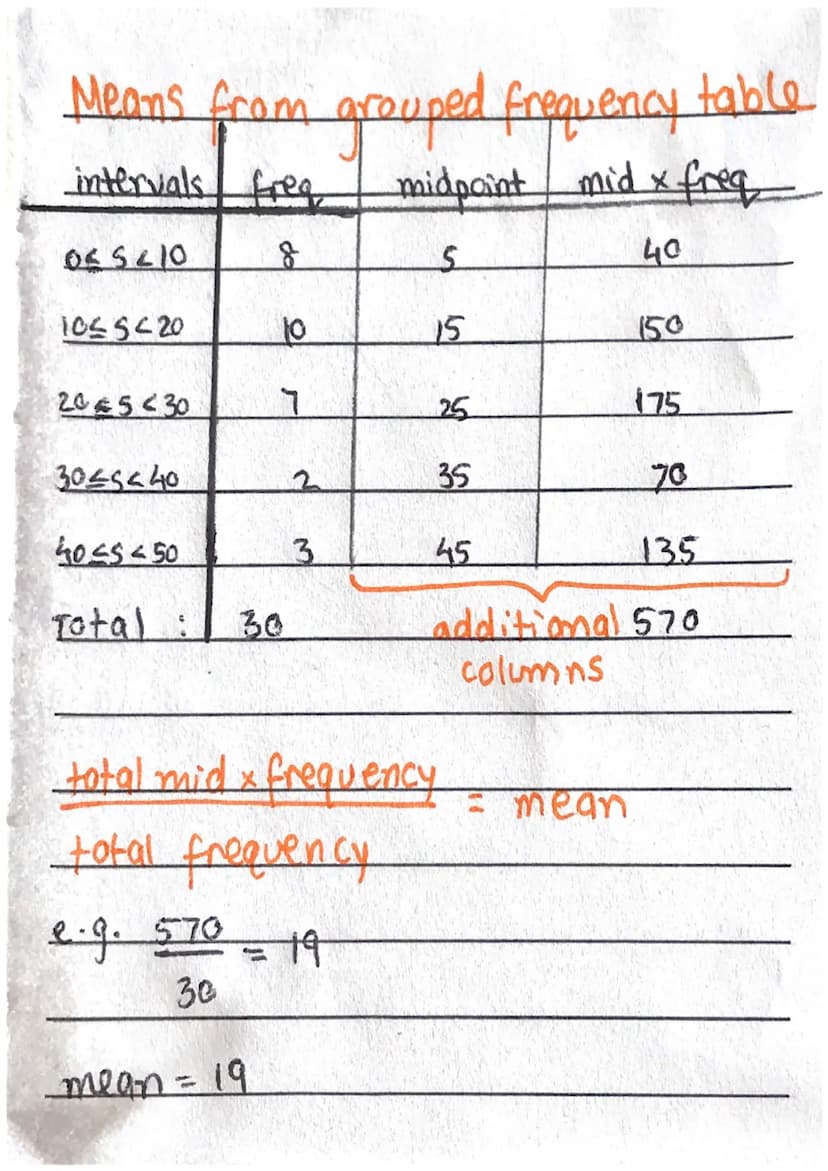 Means from grouped frequency table
intervals freq midpoint mid x freq
0≤ s<10 8 5 40
10≤ s<20 10 15 150
20≤s<30 7 25 175
30≤s<40 2 35 70
40≤s<50 3 45 135
Total : 30 additional 570
columns
total mid x frequency = mean
total frequency
e.g. 570 = 19
30
mean = 19